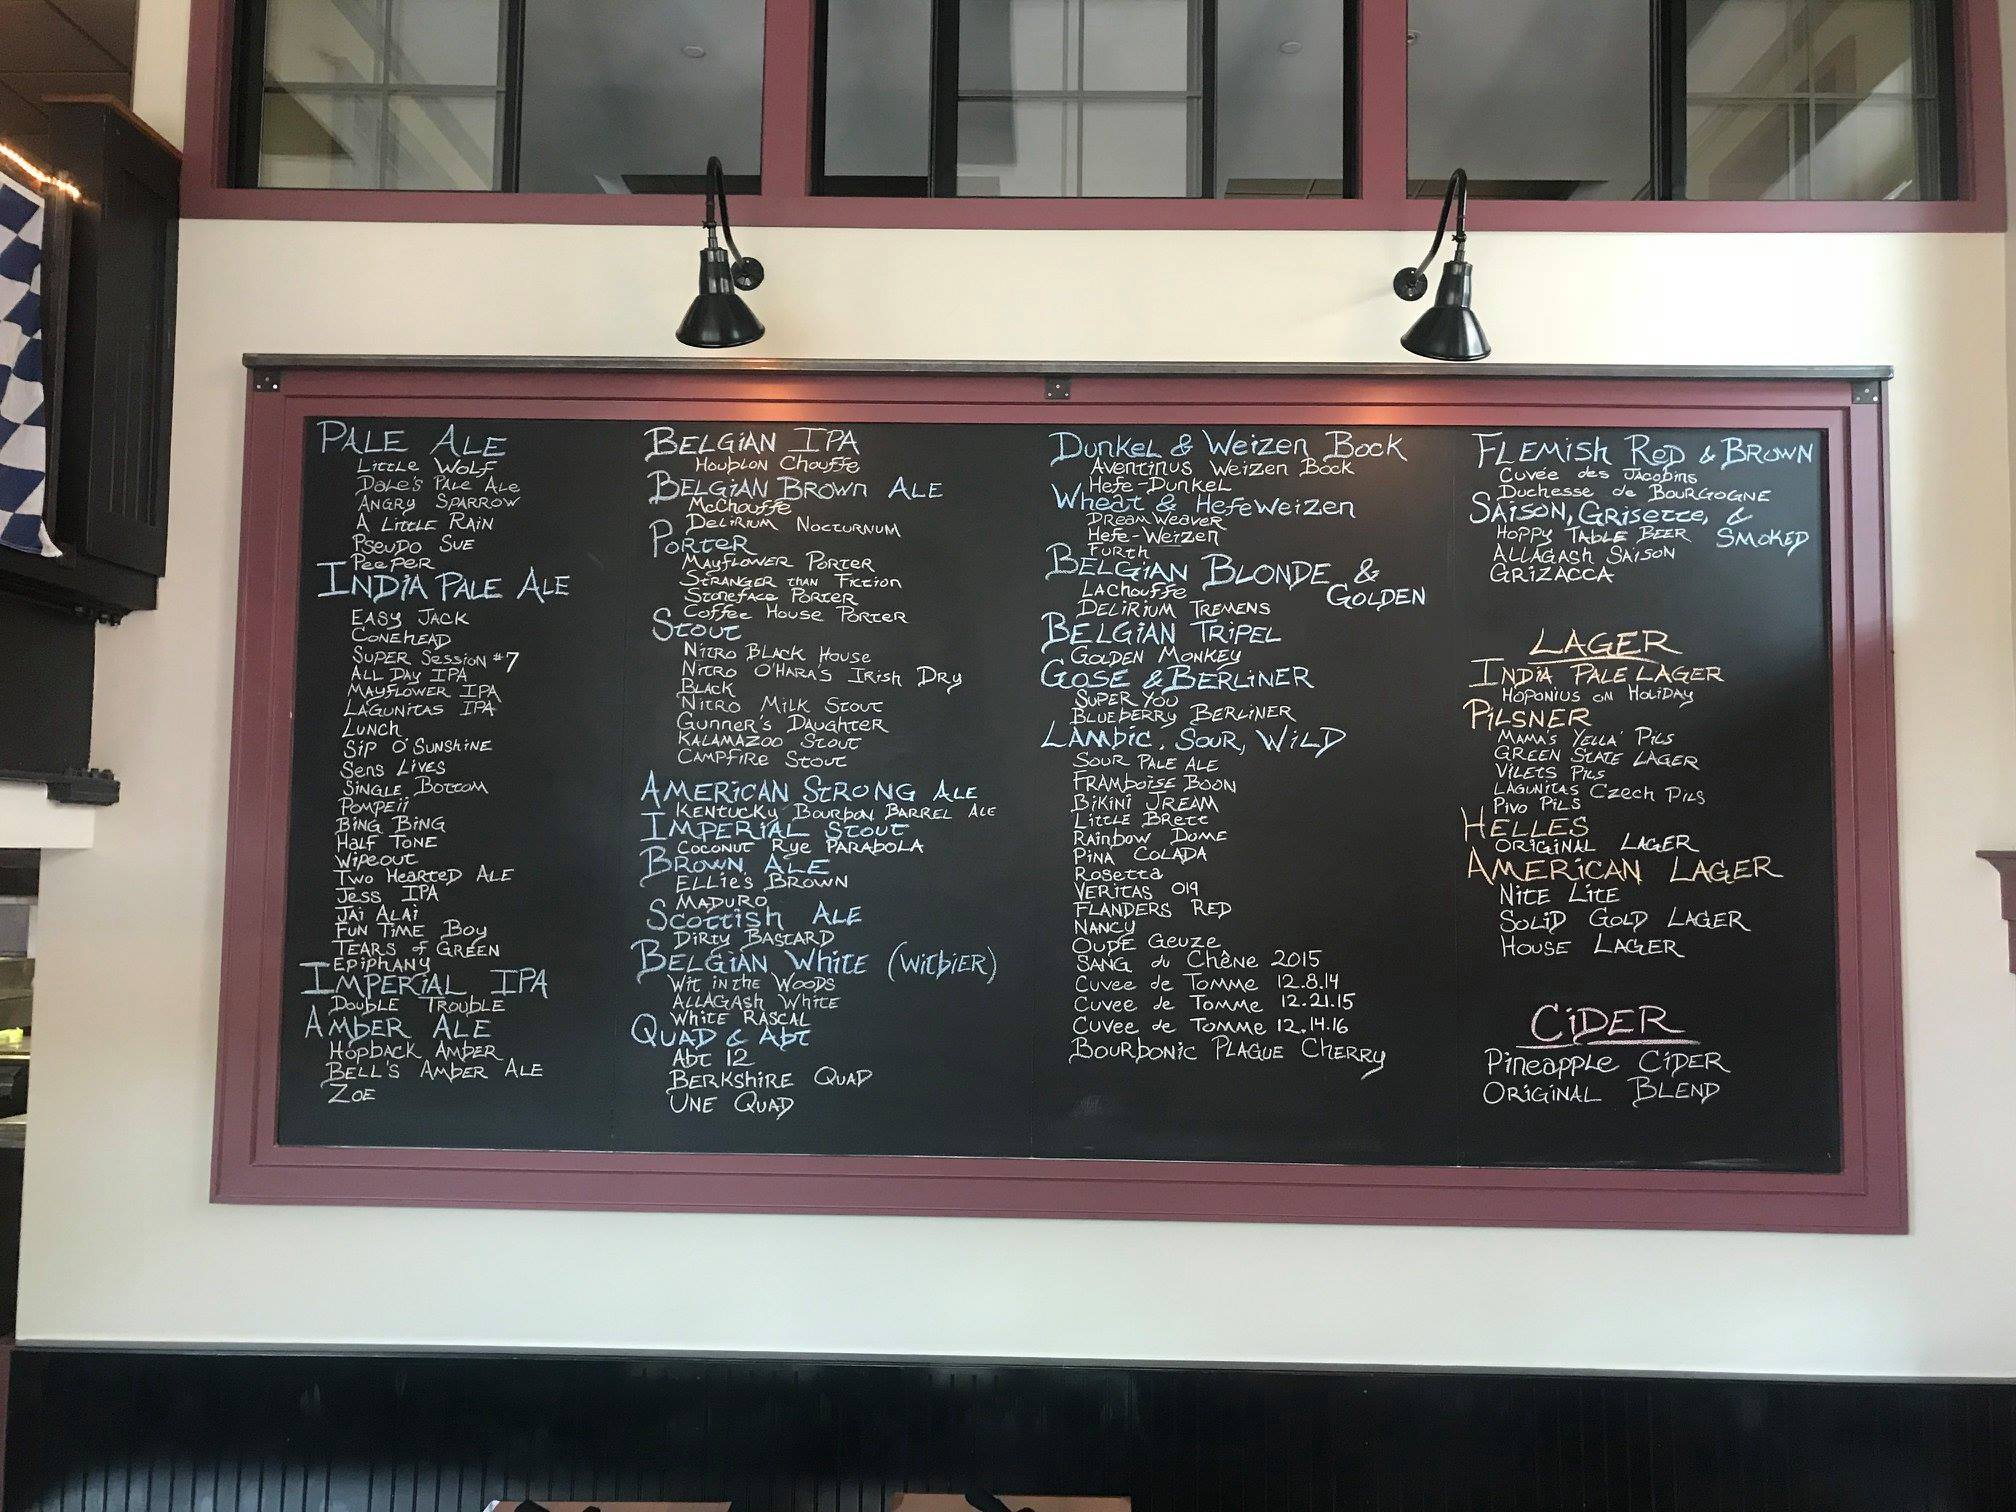 PALE ALE
Little Wolf
Dale's Pale Ale
Angry Sparrow
A Little Rain
Pseudo Sue
Peeper
INDIA PALE ALE
Easy Jack
Conehead
Super Session #7
All Day IPA
Mayflower IPA
Lagunitas IPA
Lunch
Sip O' Sunshine
Sens Lives
Single Bottom
Pompeii
Bing Bing
Half Tone
Wipeout
Two Hearted Ale
Jess IPA
Jai Alai
Fun Time Boy
Tears of Green
Epiphany
IMPERIAL IPA
Double Trouble
AMBER ALE
Hopback Amber
Bell's Amber Ale
Zoe
BELGIAN IPA
Houblon Chouffe
BELGIAN BROWN ALE
McChouffe
Delirium Nocturnum
PORTER
Mayflower Porter
Stranger than Fiction
Stoneface Porter
Coffee House Porter
STOUT
Nitro Black House
Nitro O'Hara's Irish Dry
Black
Nitro Milk Stout
Gunner's Daughter
Kalamazoo Stout
Campfire Stout
AMERICAN STRONG ALE
Kentucky Bourbon Barrel Ale
IMPERIAL STOUT
Coconut Rye Parabola
BROWN ALE
Ellie's Brown
Maduro
SCOTTISH ALE
Dirty Bastard
BELGIAN WHITE (WITBIER)
Wit in the Woods
Allagash White
White Rascal
QUAD & ABT
Abt 12
Berkshire Quad
Une Quad
DUNKEL & WEIZEN BOCK
Aventinus Weizen Bock
Hefe-Dunkel
WHEAT & HEFEWEIZEN
Dream Weaver
Hefe-Weizen
Furth
BELGIAN BLONDE & GOLDEN
LaChouffe
Delirium Tremens
BELGIAN TRIPEL
Golden Monkey
GOSE & BERLINER
Super You
Blueberry Berliner
LAMBIC, SOUR, WILD
Sour Pale Ale
Framboise Boon
Bikini Jream
Little Brett
Rainbow Dome
Pina Colada
Rosetta
Veritas 019
Flanders Red
Nancy
Oude Geuze
Sang du Chêne 2015
Cuvee de Tomme 12.8.14
Cuvee de Tomme 12.21.15
Cuvee de Tomme 12.14.16
Bourbonic Plague Cherry
FLEMISH RED & BROWN
Cuvée des Jacobins
Duchesse de Bourgogne
SAISON, GRISETTE, & SMOKED
Hoppy Table Beer
Allagash Saison
Grizacca
LAGER
INDIA PALE LAGER
Hoponius on Holiday
PILSNER
Mama's Yella' Pils
Green State Lager
Vilets Pils
Lagunitas Czech Pils
Pivo Pils
HELLES
Original Lager
AMERICAN LAGER
Nite Lite
Solid Gold Lager
House Lager
CIDER
Pineapple Cider
Original Blend